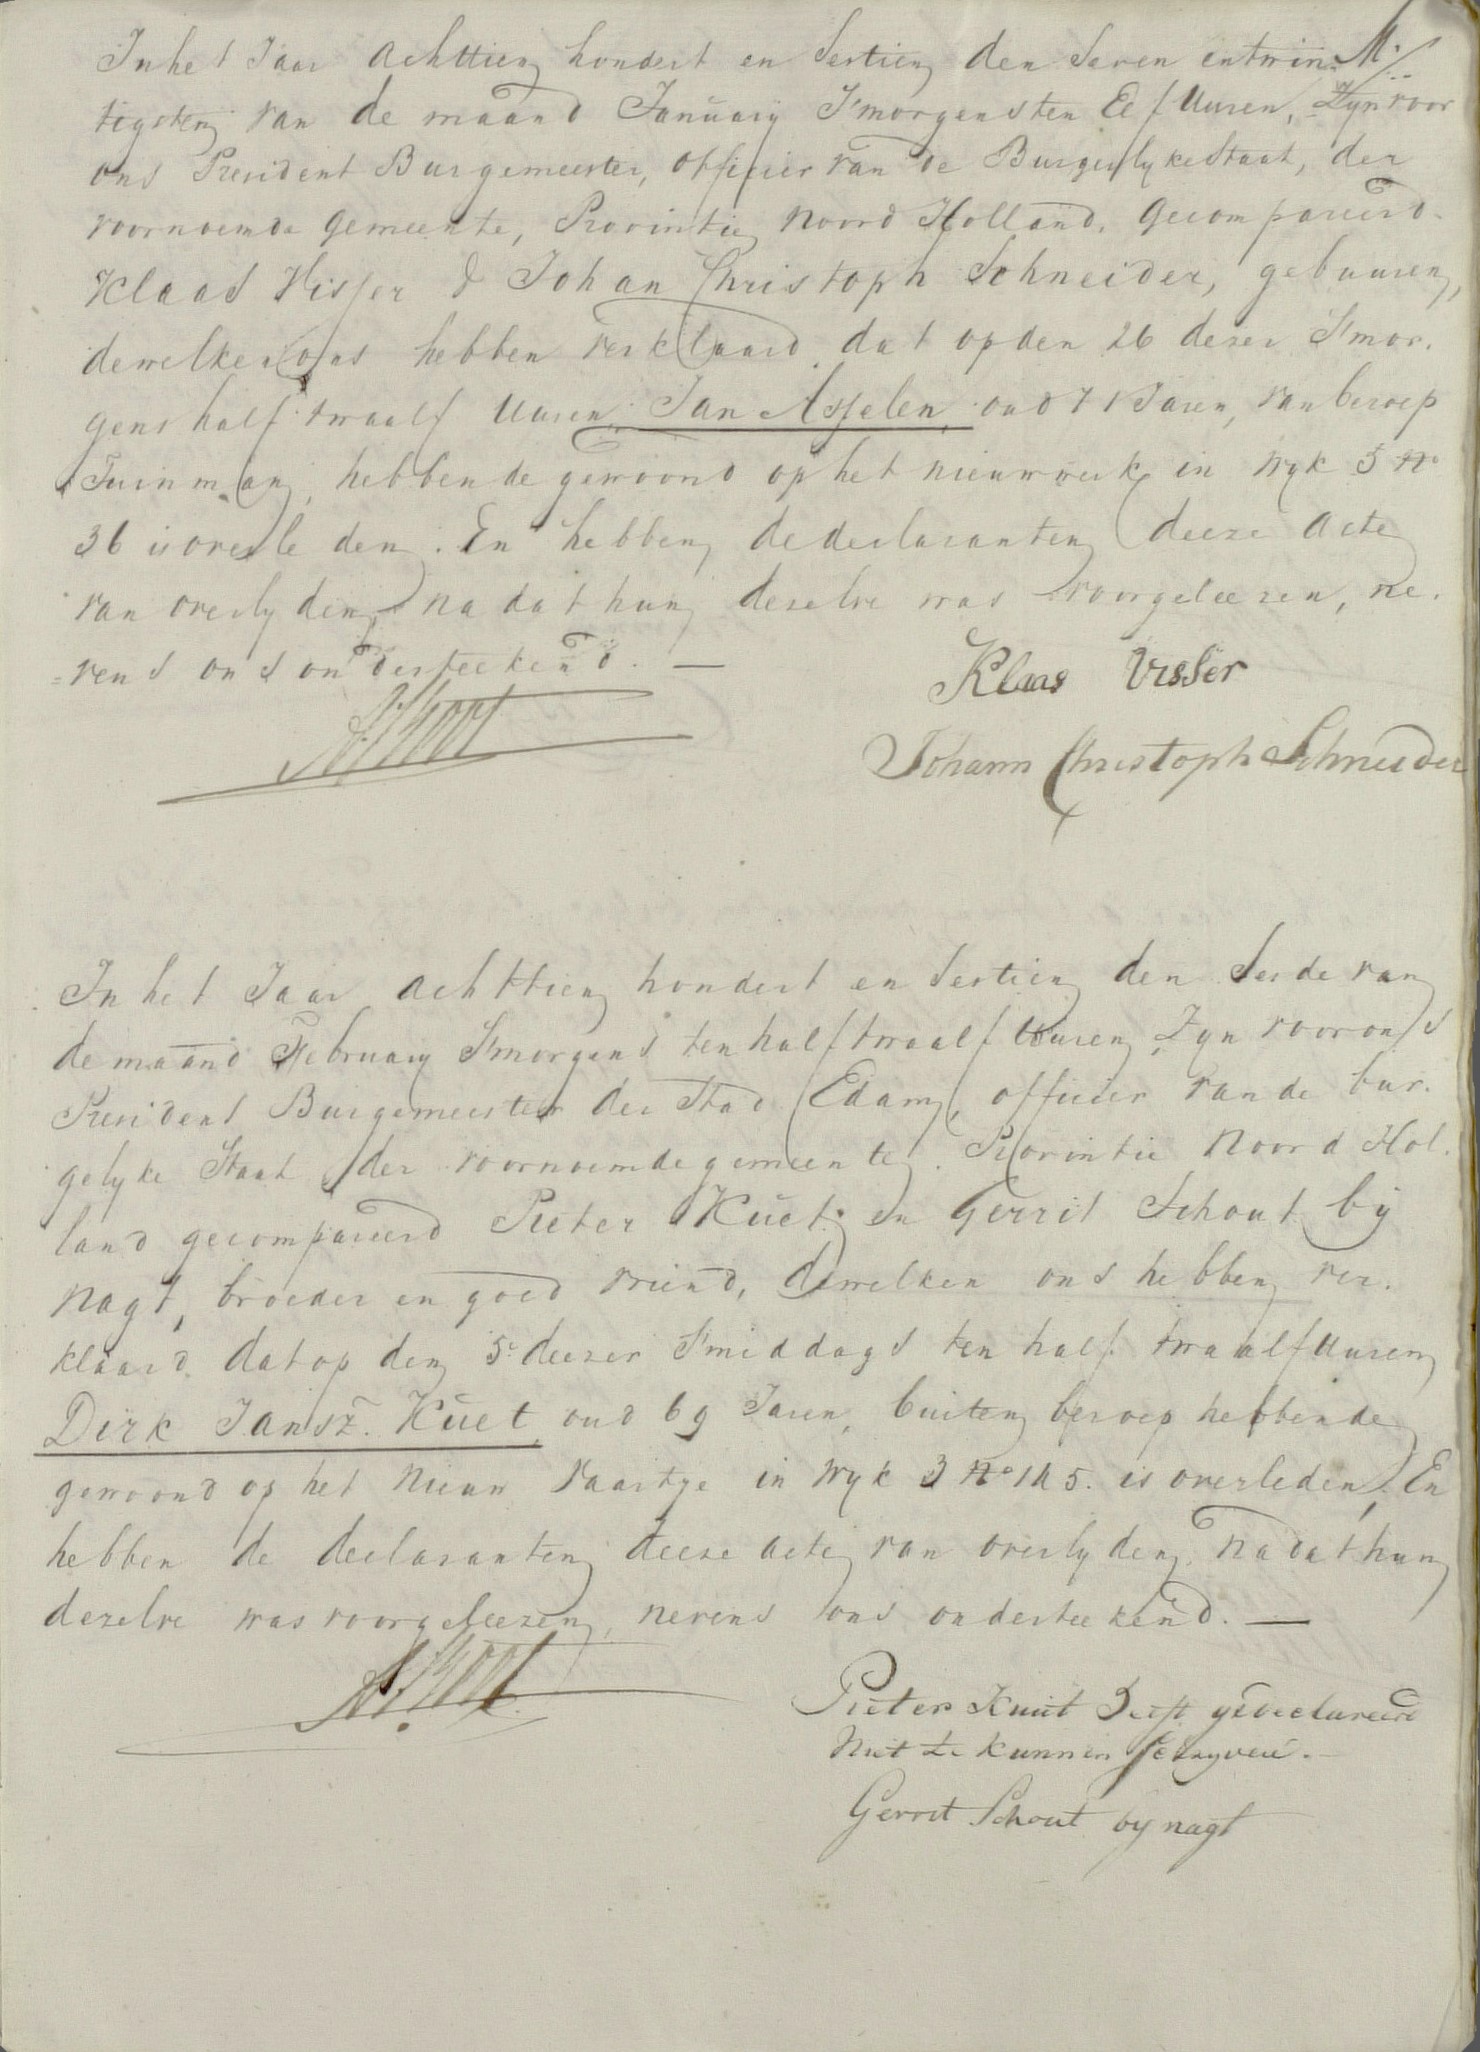 In het Jaar achttien hondert en Sestien den Seven entwin. M.
tigsten van de maand January S'morgens ten Elf Uuren, Zyn voor
ons President Burgemeester, officier van de Burgerlyke Staat, der
voornoemde gemeente, Provintie Noord Holland. gecompareerd.
Klaas Visser & Johan Christoph Schneider, gebuuren,
dewelken ons hebben verklaard dat op den 26 dezer S'mor.
gens half twaalf Uuren, Jan Asselen, oud 71 Jaren, van beroep
Tuinman, hebbende gewoond op het nieuwwerk in Wyk 5 No
36 is overleden. En hebben de declaranten deeze acte
van overlyden, na dat hun dezelve was voorgeleezen, ne.
=vens ons onderteekend. —
Klaas Visser
Johann Christoph Schneider
In het Jaar achttien hondert en Sestien den Sesde van
de maand February S'morgens ten half twaalf Uuren, Zyn voor ons
President Burgemeester der Stad Edam, officier van de bur.
gelyke Staat der voornoemde gemeente, Provintie Noord Hol.
land gecompareerd Pieter Kuet en Gerrit Schout by
Nagt, broeder en goed vriend, dewelken ons hebben ver.
klaard dat op den 5e deezer S'middags ten half twaalf Uuren
Dirk Jansz. Kuet, oud 69 Jaren, buiten beroep hebbende
gewoond op het Nieuw Vaartje in Wyk 3 No 145. is overleden. En
hebben de declaranten deeze acte van overlyden, na dat hun
dezelve was voorgeleezen, nevens ons onderteekend. —
Pieter Kuut Heeft gedeclareerd
Niet te kunnen Schryven. —
Gerrit Schout by nagt